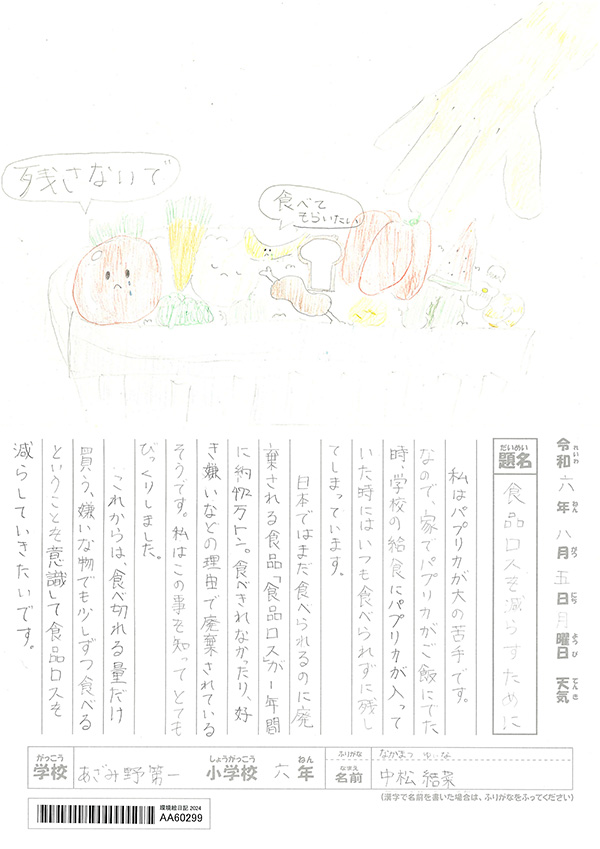 残さないで
食べて
もらいたい
令和六年八月五日月曜日 天気
れいわ ねん がつ にち ようび てんき
だいめい
題名 食品ロスを減らすために
私はパプリカが大の苦手です。
なので、家でパプリカがご飯にでた
時、学校の給食にパプリカが入って
いた時にはいつも食べられずに残し
てしまっています。
日本ではまだ食べられるのに廃
棄される食品「食品ロス」が1年間
に約472万トン。食べきれなかったり、好
き嫌いなどの理由で廃棄されている
そうです。私はこの事を知ってとても
びっくりしました。
これからは、食べ切れる量だけ
買う、嫌いな物でも少しずつ食べる
ということを意識して食品ロスを
減らしていきたいです。
がっこう しょうがっこう ねん ふりがな なかまつ ゆいな
学校 あざみ野第一 小学校 六年 なまえ 名前 中松 結菜
(漢字で名前を書いた場合は、ふりがなをふってください)
環境絵日記 2024
AA60299